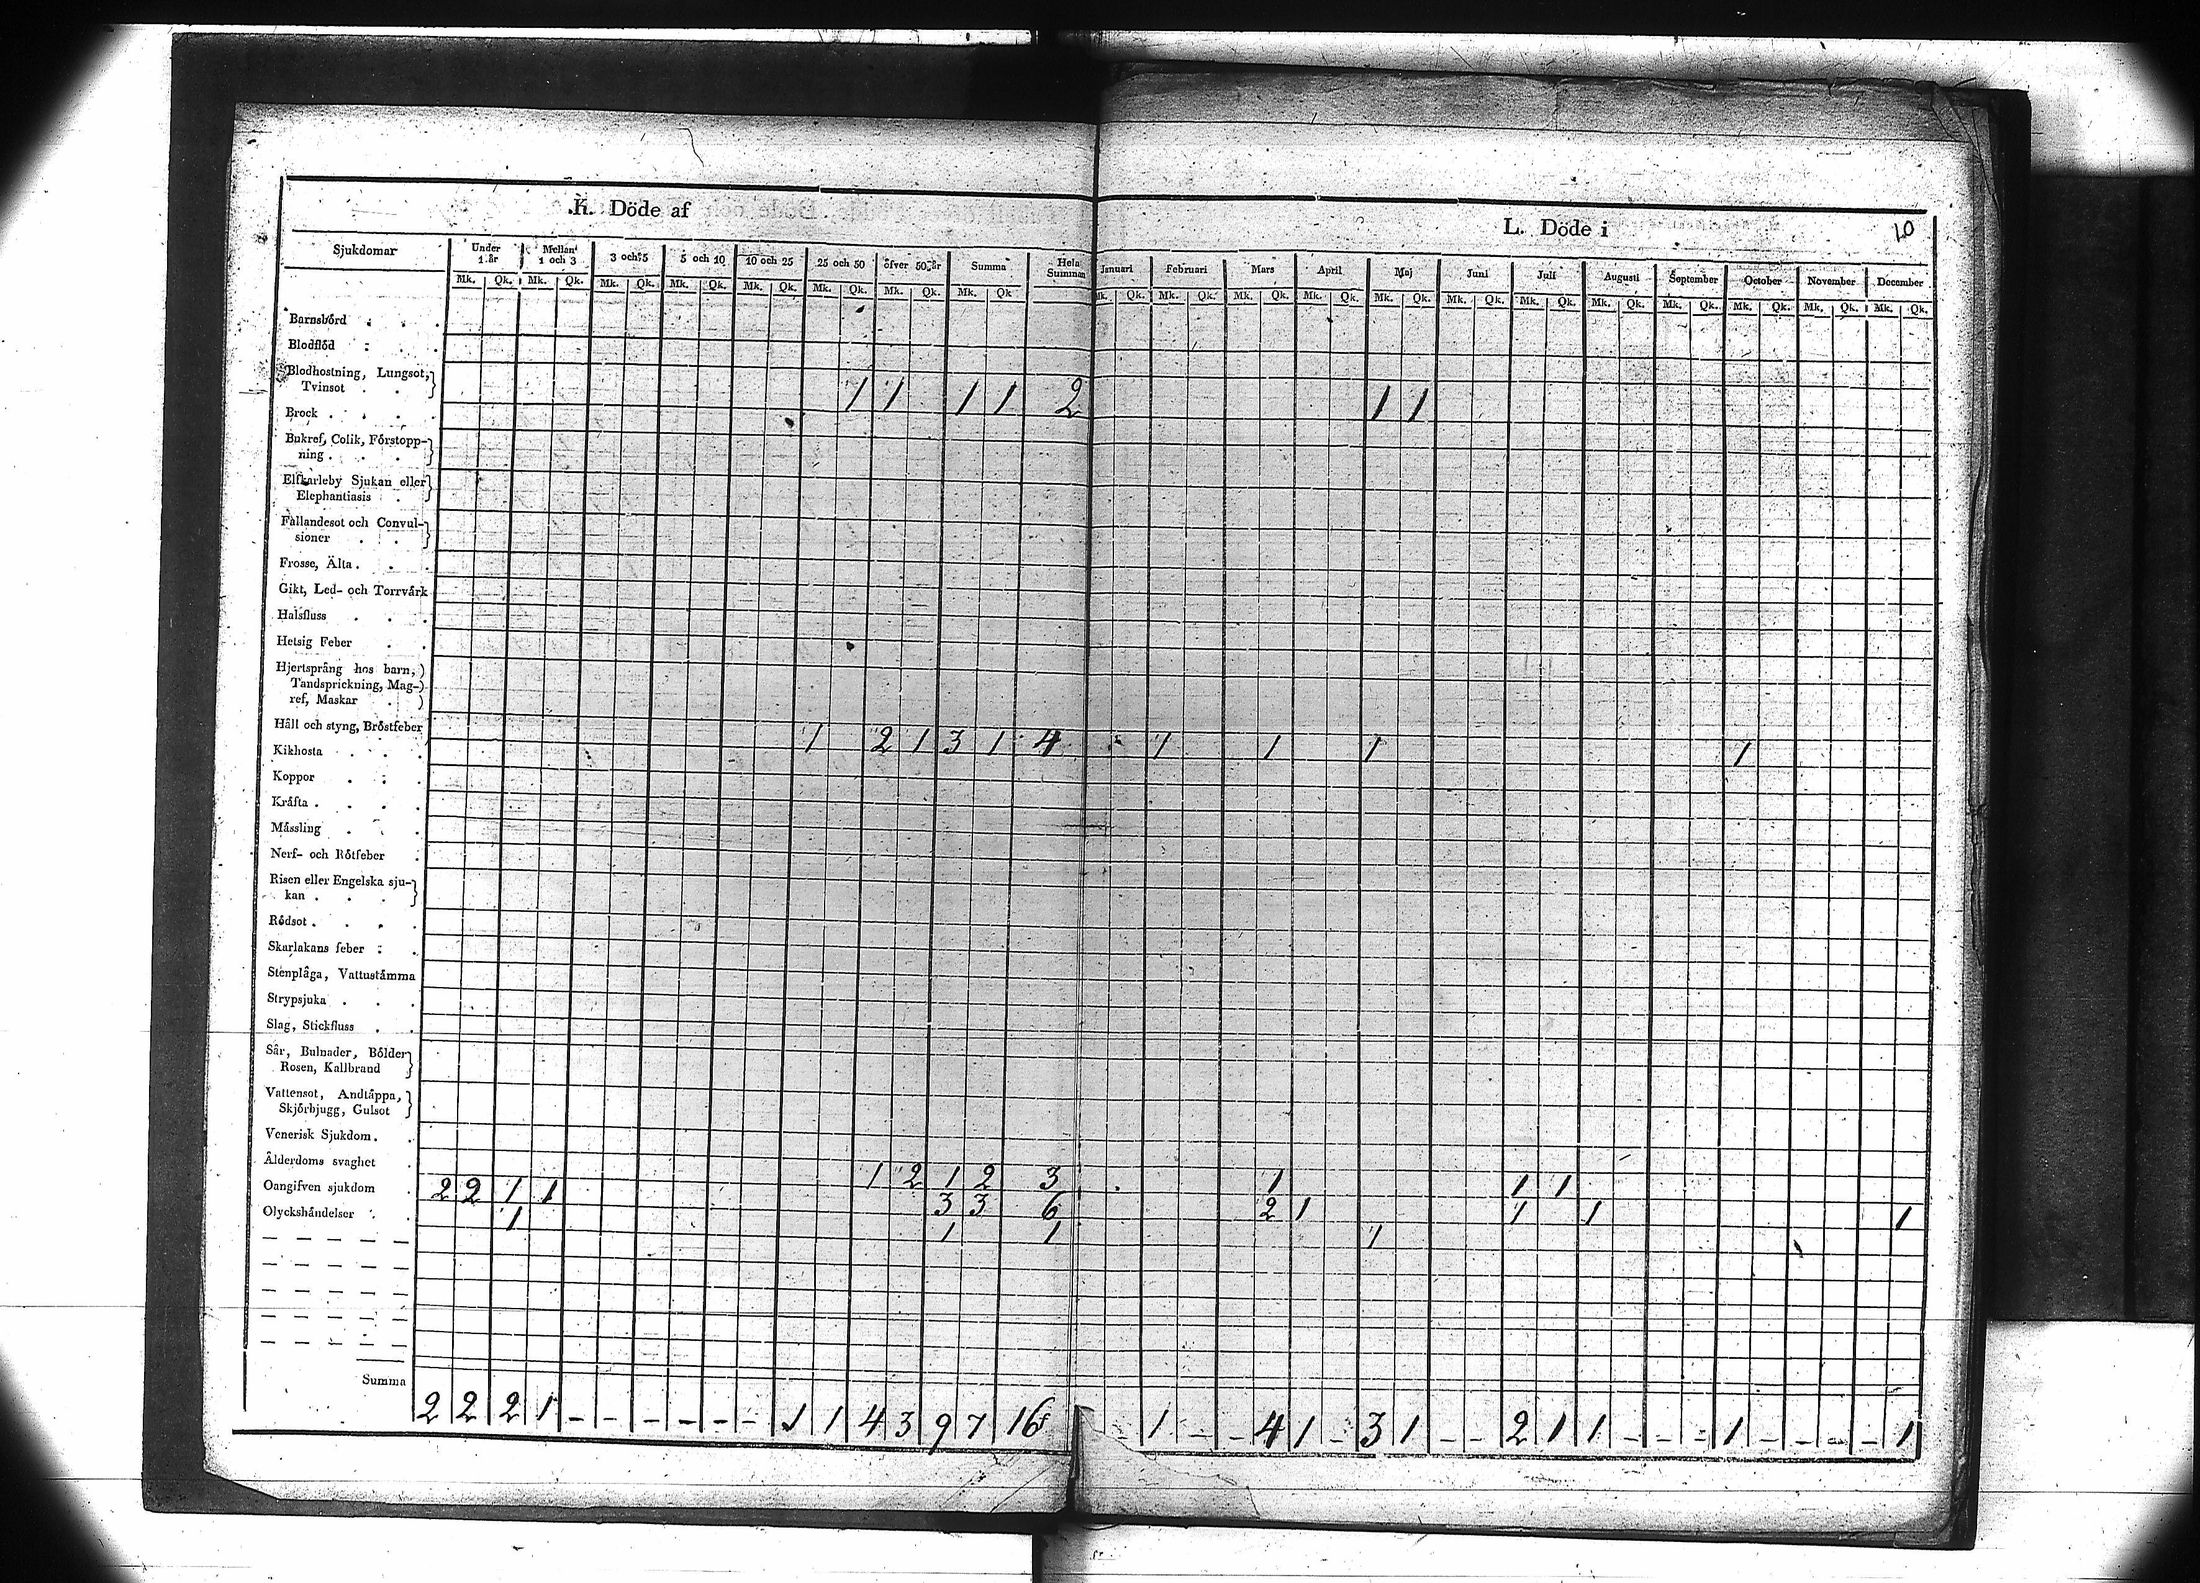 K. Döde af
L. Döde i
10
Sjukdomar
Under 1 år
Mellan 1 och 3
3 och 5
5 och 10
10 och 25
25 och 50
öfver 50 år
Summa
Hela Summan
Januari
Februari
Mars
April
Maj
Juni
Juli
Augusti
September
October
November
December
Mk. Qk. Mk. Qk. Mk. Qk. Mk. Qk. Mk. Qk. Mk. Qk. Mk. Qk. Mk. Qk
Mk. Qk. Mk. Qk. Mk. Qk. Mk. Qk. Mk. Qk. Mk. Qk. Mk. Qk. Mk. Qk. Mk. Qk. Mk. Qk. Mk. Qk. Mk. Qk.
Barnsbörd
Blodflöd
Blodhostning, Lungsot,
Tvinsot 1 1 1 1 2 1 1
Brock
Bukref, Colik, Förstopp-
ning
Elfkarleby Sjukan eller
Elephantiasis
Fallandesot och Convul-
sioner
Frosse, Älta
Gikt, Led- och Torrvärk
Halsfluss
Hetsig Feber
Hjertsprång hos barn,
Tandsprickning, Mag-
ref, Maskar
Håll och styng, Bröstfeber 1 2 1 3 1 4 1 1 1 1
Kikhosta
Koppor
Kräfta
Mässling
Nerf- och Rötfeber
Risen eller Engelska sju-
kan
Rödsot
Skarlakans feber
Stenplåga, Vattustämma
Strypsjuka
Slag, Stickfluss
Sår, Bulnader, Bölder
Rosen, Kallbrand
Vattensot, Andtäppa,
Skjörbjugg, Gulsot
Venerisk Sjukdom
Ålderdoms svaghet 1 2 1 2 3 1 1 1
Oangifven sjukdom 2 2 1 1 3 3 6 2 1 1 1 1
Olyckshändelser 1 1 1 1
Summa
2 2 2 1 - - - - - - 1 1 4 3 9 7 16 - 1 - - 4 1 - 3 1 - - 2 1 1 - - - 1 - - - - 1